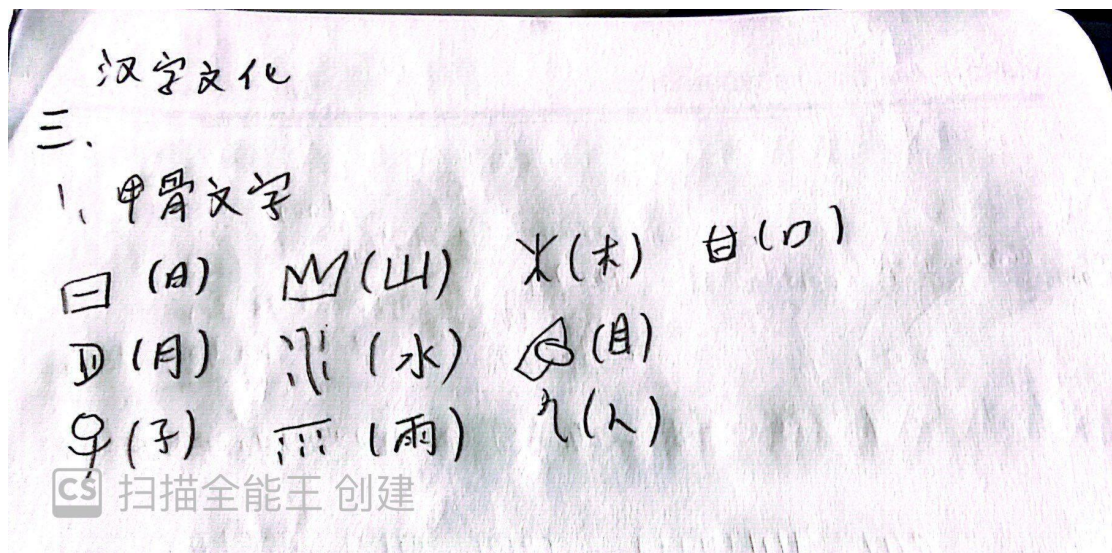 汉字文化
三、
1、甲骨文字
(日) (山) (木) (口)
(月) (水) (目)
(子) (雨) (人)
CS 扫描全能王 创建